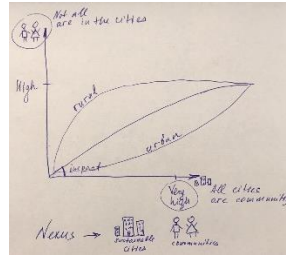 Not all
are in the cities
High
rural
urban
impact
Very
high
All cities
are community
Nexus →
sustainable
cities
communities